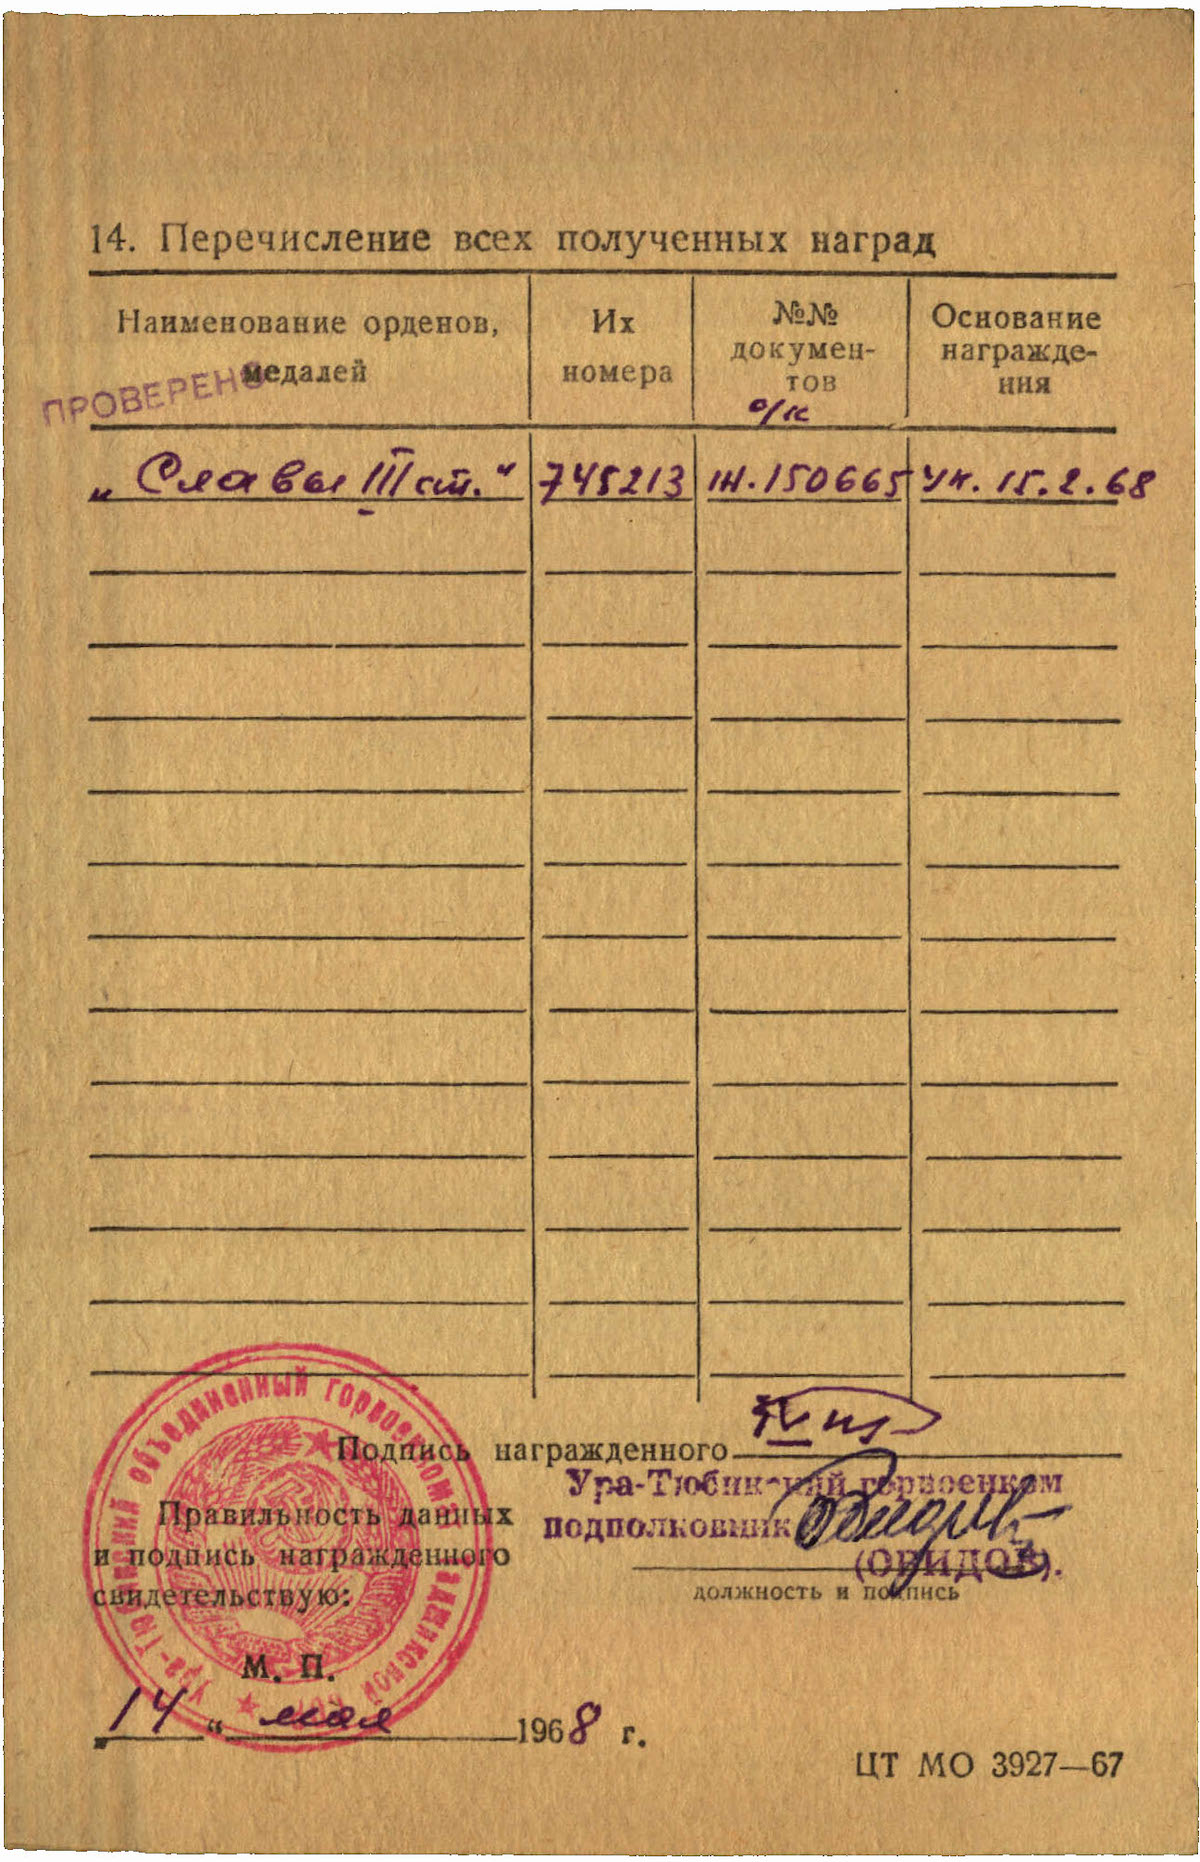 14. Перечисление всех полученных наград
Наименование орденов,
медалей
Их
номера
№№
докумен-
тов
о/к
Основание
награжде-
ния
ПРОВЕРЕНО
„Славы III ст.“ 745213 Ж.150665 Ук. 15.2.68
Подпись награжденного
Ура-Тюбинский горвоенком
подполковник
(ОБИДОВ).
должность и подпись
Правильность данных
и подпись награжденного
свидетельствую:
Ура-Тюбинский объединенный горвоенкомат Таджикской ССР
М. П.
„14“ мая 1968 г.
ЦТ МО 3927—67